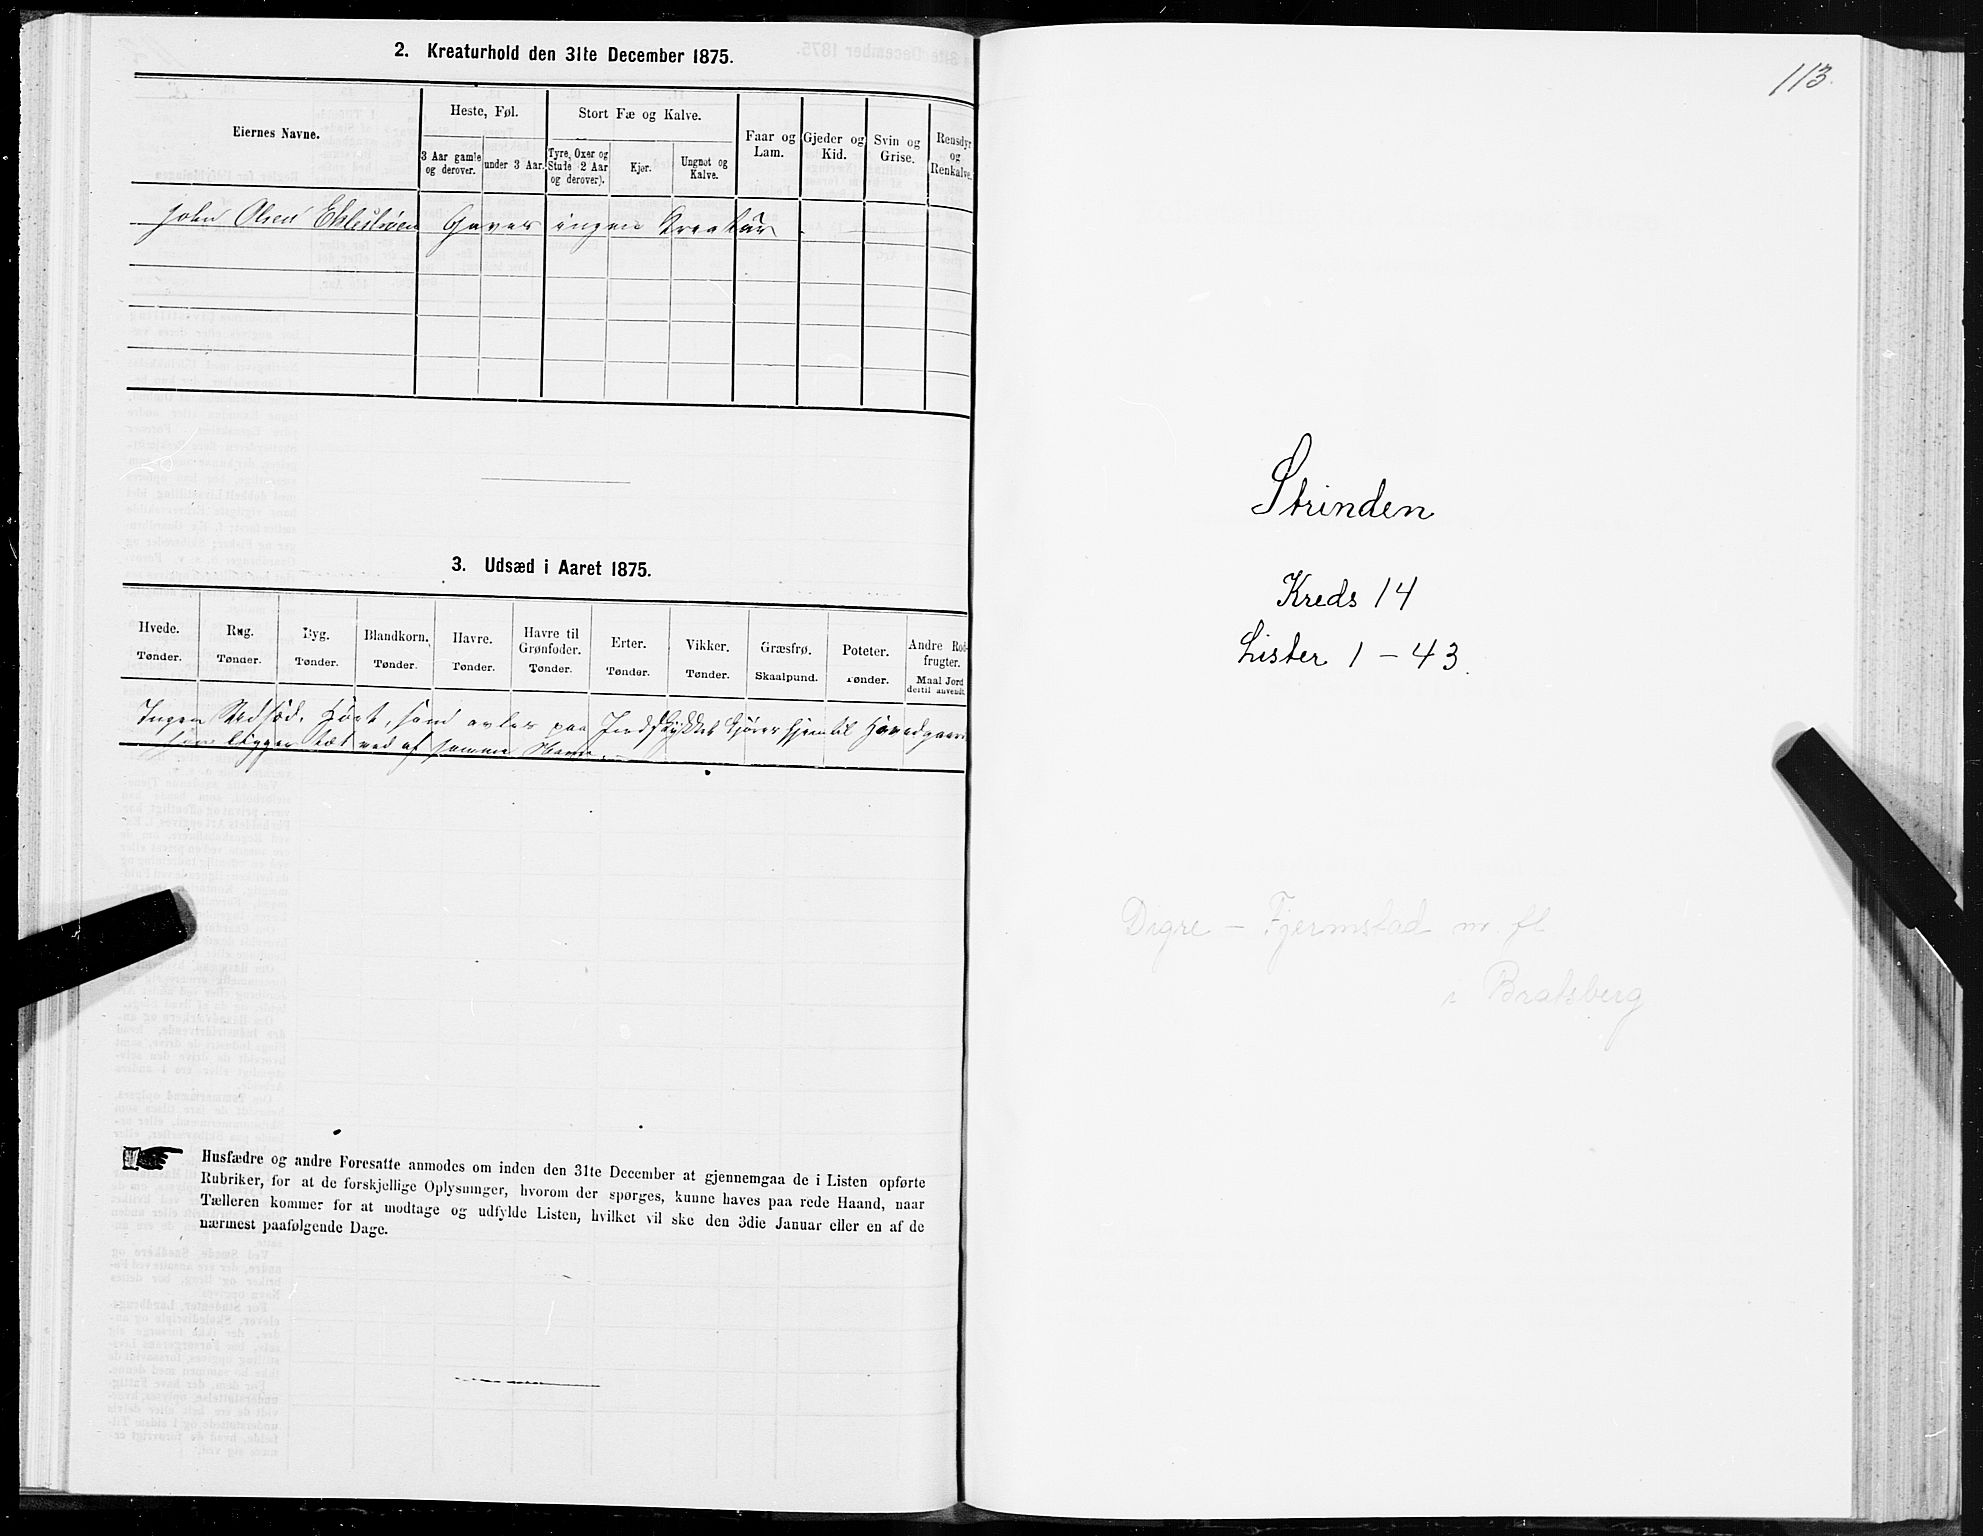 2. Kreaturhold den 31te December 1875.
Eiernes Navne.
Heste, Føl.
Stort Fæ og Kalve.
Faar og Lam.
Gjeder og Kid.
Svin og Grise.
Rensdyr og Renkalve.
3 Aar gamle og derover.
under 3 Aar.
Tyre, Oxer og Stude (2 Aar og derover).
Kjør.
Ungnøt og Kalve.
John Olsen ingen Kreatur
3. Udsæd i Aaret 1875.
Hvede. Rug. Byg. Blandkorn. Havre. Havre til Grønfoder. Erter. Vikker. Græsfrø. Poteter. Andre Rodfrugter.
Tønder. Tønder. Tønder. Tønder. Tønder. Tønder. Tønder. Tønder. Skaalpund. Tønder. Maal Jord dertil anvendt.
Ingen Udsæd. som avles paa hjem til
som ligger tæt ved af samme Navn.
Husfædre og andre Foresatte anmodes om inden den 31te December at gjennemgaa de i Listen opførte
Rubriker, for at de forskjellige Oplysninger, hvorom der spørges, kunne haves paa rede Haand, naar
Tælleren kommer for at modtage og udfylde Listen, hvilket vil ske den 3die Januar eller en af de
nærmest paafølgende Dage.
113.
Strinden
Kreds 14
Lister 1 - 43.
Digre - Fjermstad m. fl.
i Bratsberg